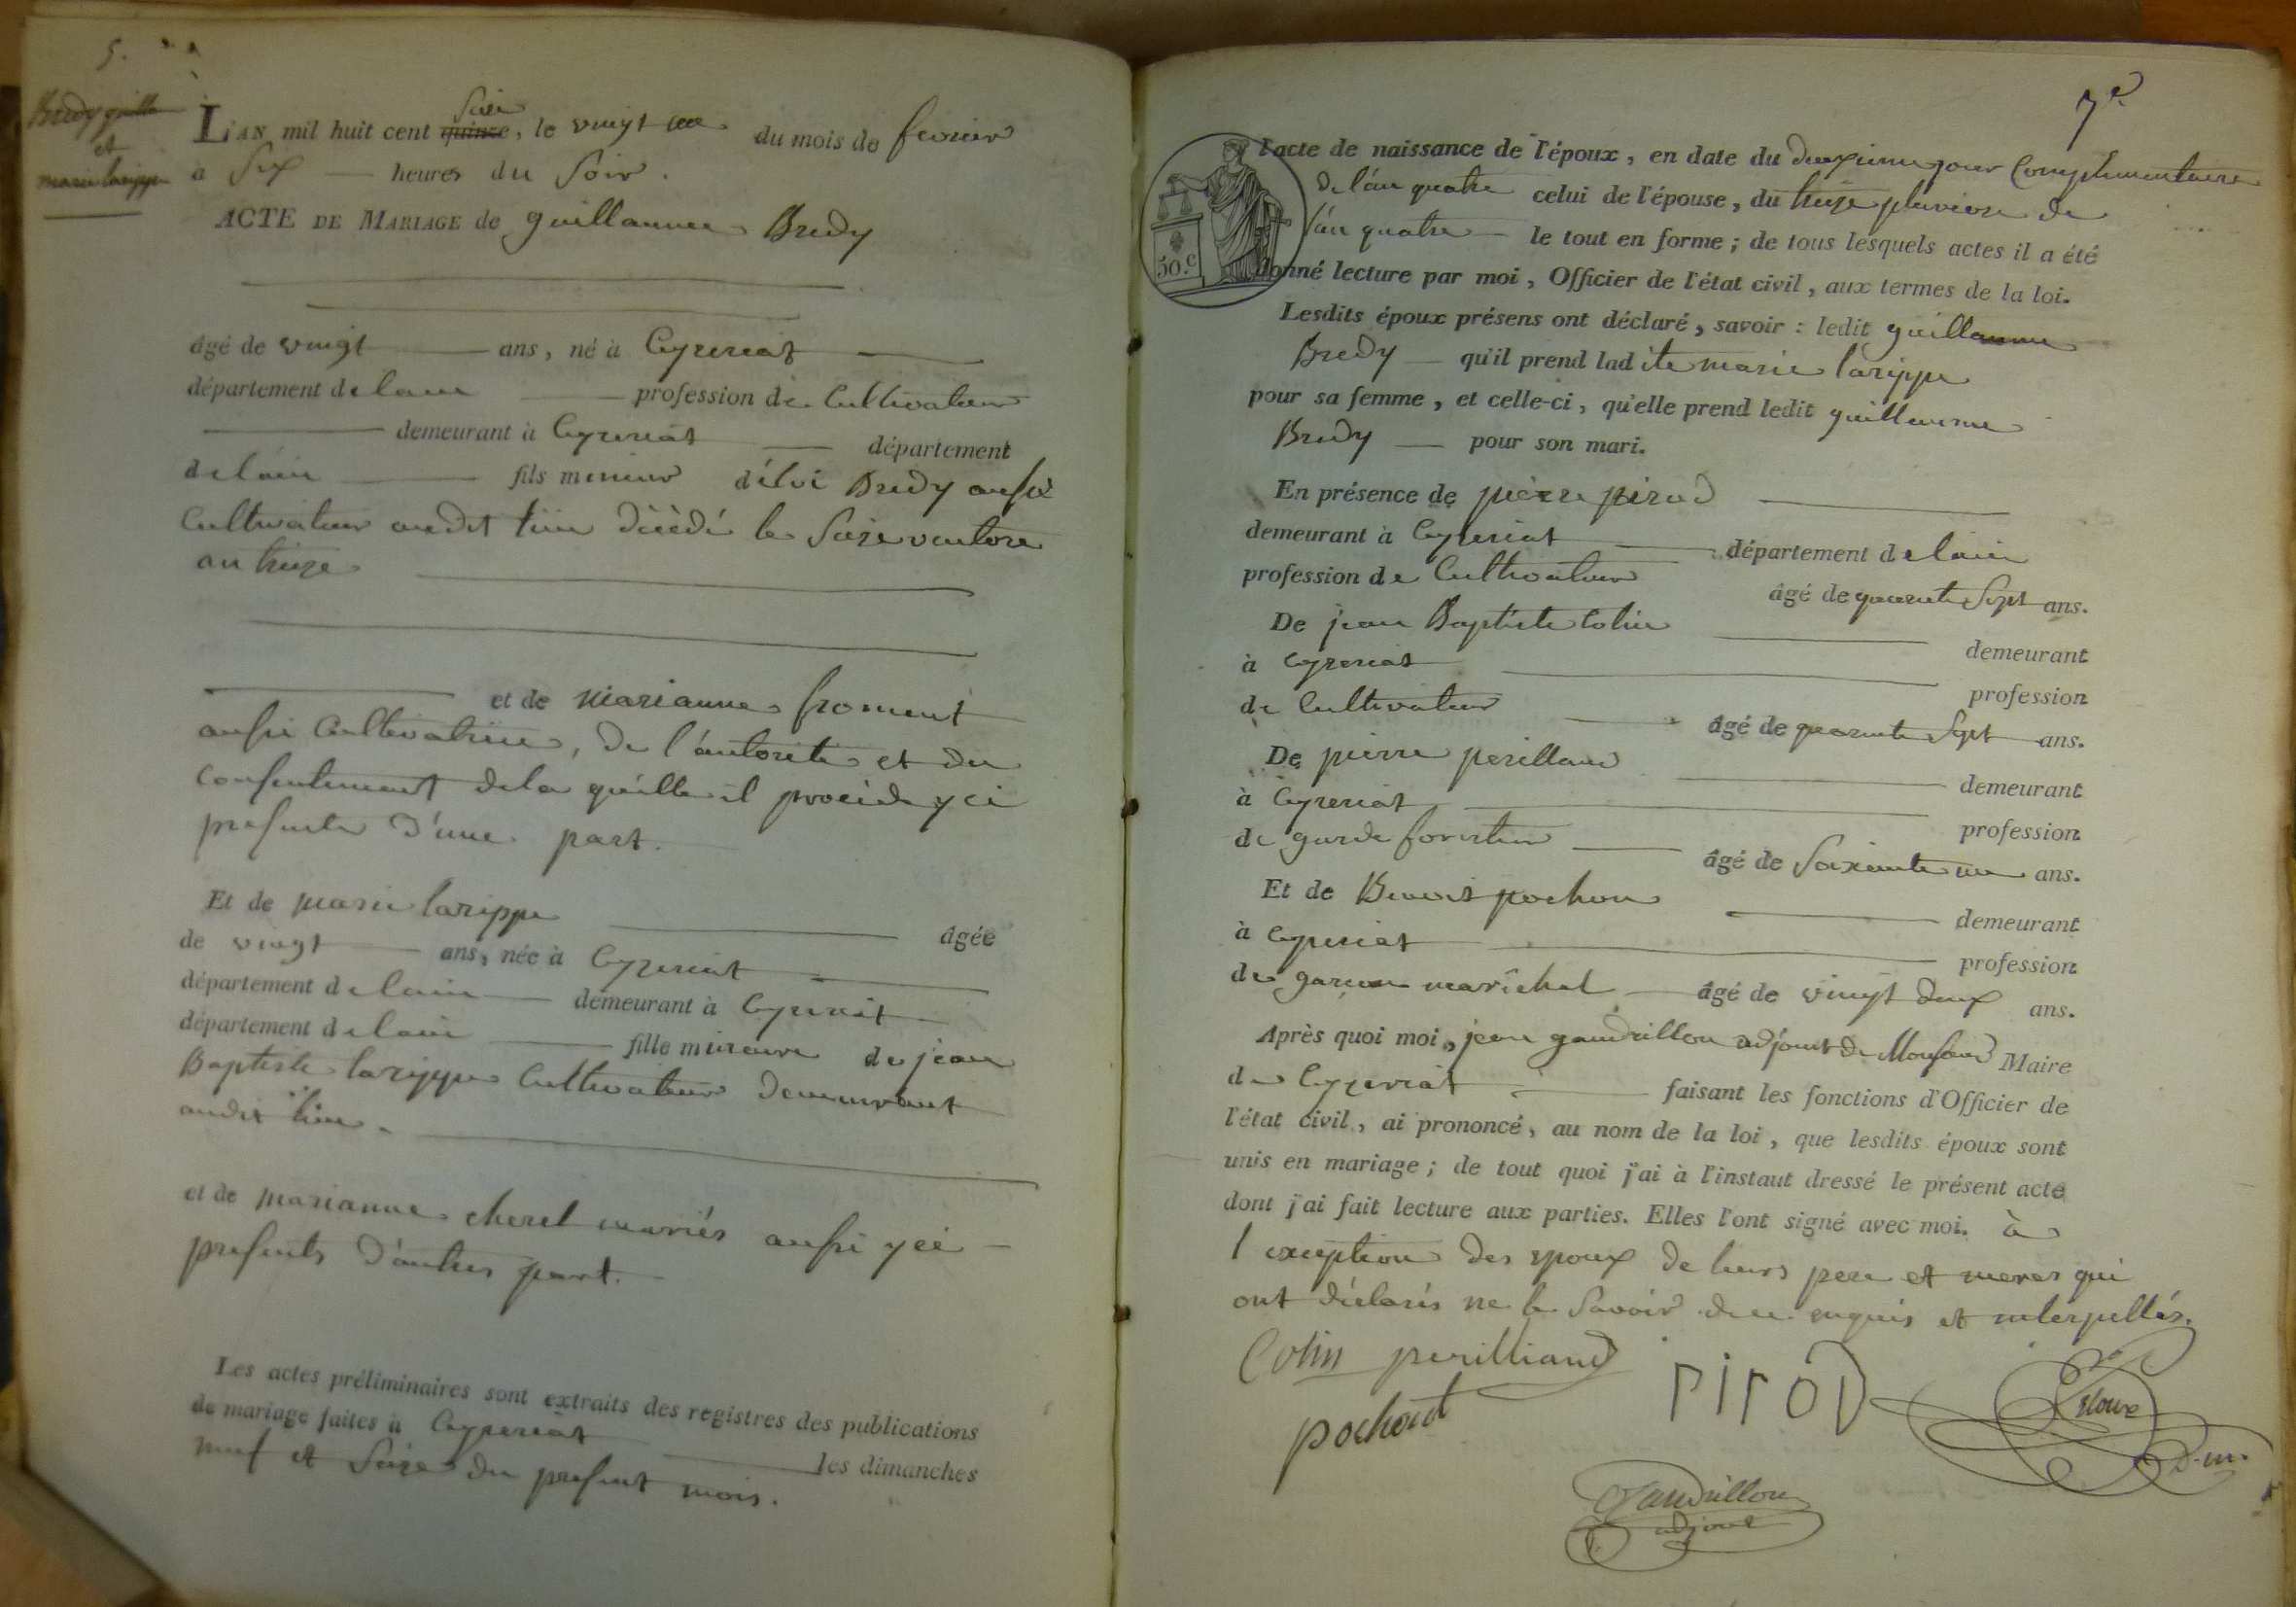 5.
Bredy guille
et
marie larippe
Seize
L'AN mil huit cent quinze, le vingt un du mois de fevrier
à Six heures du Soir.
ACTE DE MARIAGE de guillaume Bredy
âgé de vingt ans, né à Ceyzeriat
département de lain profession de Cultivateur
demeurant à Ceyzeriat département
de l'ain fils mineur d'éloi Bredy aussi
Cultivateur audit lieu décédé le Seize ventose
an treize
et de marianne froment
aussi Cultivatrice, de l'autorité et du
consentement de la quelle il procède yci
presente d'une part.
Et de marie larippe âgée
de vingt ans, née à Ceyzeriat
département de lain demeurant à Ceyzeriat
département de lain fille mineure de jean
Baptiste larippe Cultivateur demeurant
audit lieu.
et de marianne cherel mariés aussi yci
presents d'autres part.
Les actes préliminaires sont extraits des registres des publications
de mariage faites à Ceyzeriat les dimanches
neuf et Seize du present mois.
7e
l'acte de naissance de l'époux, en date du deuxieme jour Complementaire
de l'an quatre celui de l'épouse, du treize pluviose de
l'an quatre le tout en forme; de tous lesquels actes il a été
50.c
donné lecture par moi, Officier de l'état civil, aux termes de la loi.
Lesdits époux présens ont déclaré, savoir: ledit guillaume
Bredy qu'il prend ladite marie larippe
pour sa femme, et celle-ci, qu'elle prend ledit guillaume
Bredy pour son mari.
En présence de pierre pirod
demeurant à Ceyzeriat département de lain
profession de Cultivateur âgé de quarente Sept ans.
De jean Baptiste Colin demeurant
à Ceyzeriat profession
de Cultivateur âgé de quarente Sept ans.
De pierre perilland demeurant
à Ceyzeriat profession
de garde forestier âgé de Soixante un ans.
Et de Benoit pochon demeurant
à Ceyzeriat profession
de garcon maréchal âgé de vingt deux ans.
Après quoi moi, jean gaudrillon adjoint de Monsieur Maire
de Ceyzeriat faisant les fonctions d'Officier de
l'état civil, ai prononcé, au nom de la loi, que lesdits époux sont
unis en mariage; de tout quoi j'ai à l'instant dressé le présent acte
dont j'ai fait lecture aux parties. Elles l'ont signé avec moi. à
l'exception des epoux de leurs pere et meres qui
ont déclarés ne le Savoir de ce enquis et interpellés.
Colin perilliand pirod
pochont
D.m.
Gaudrillon
adjoint